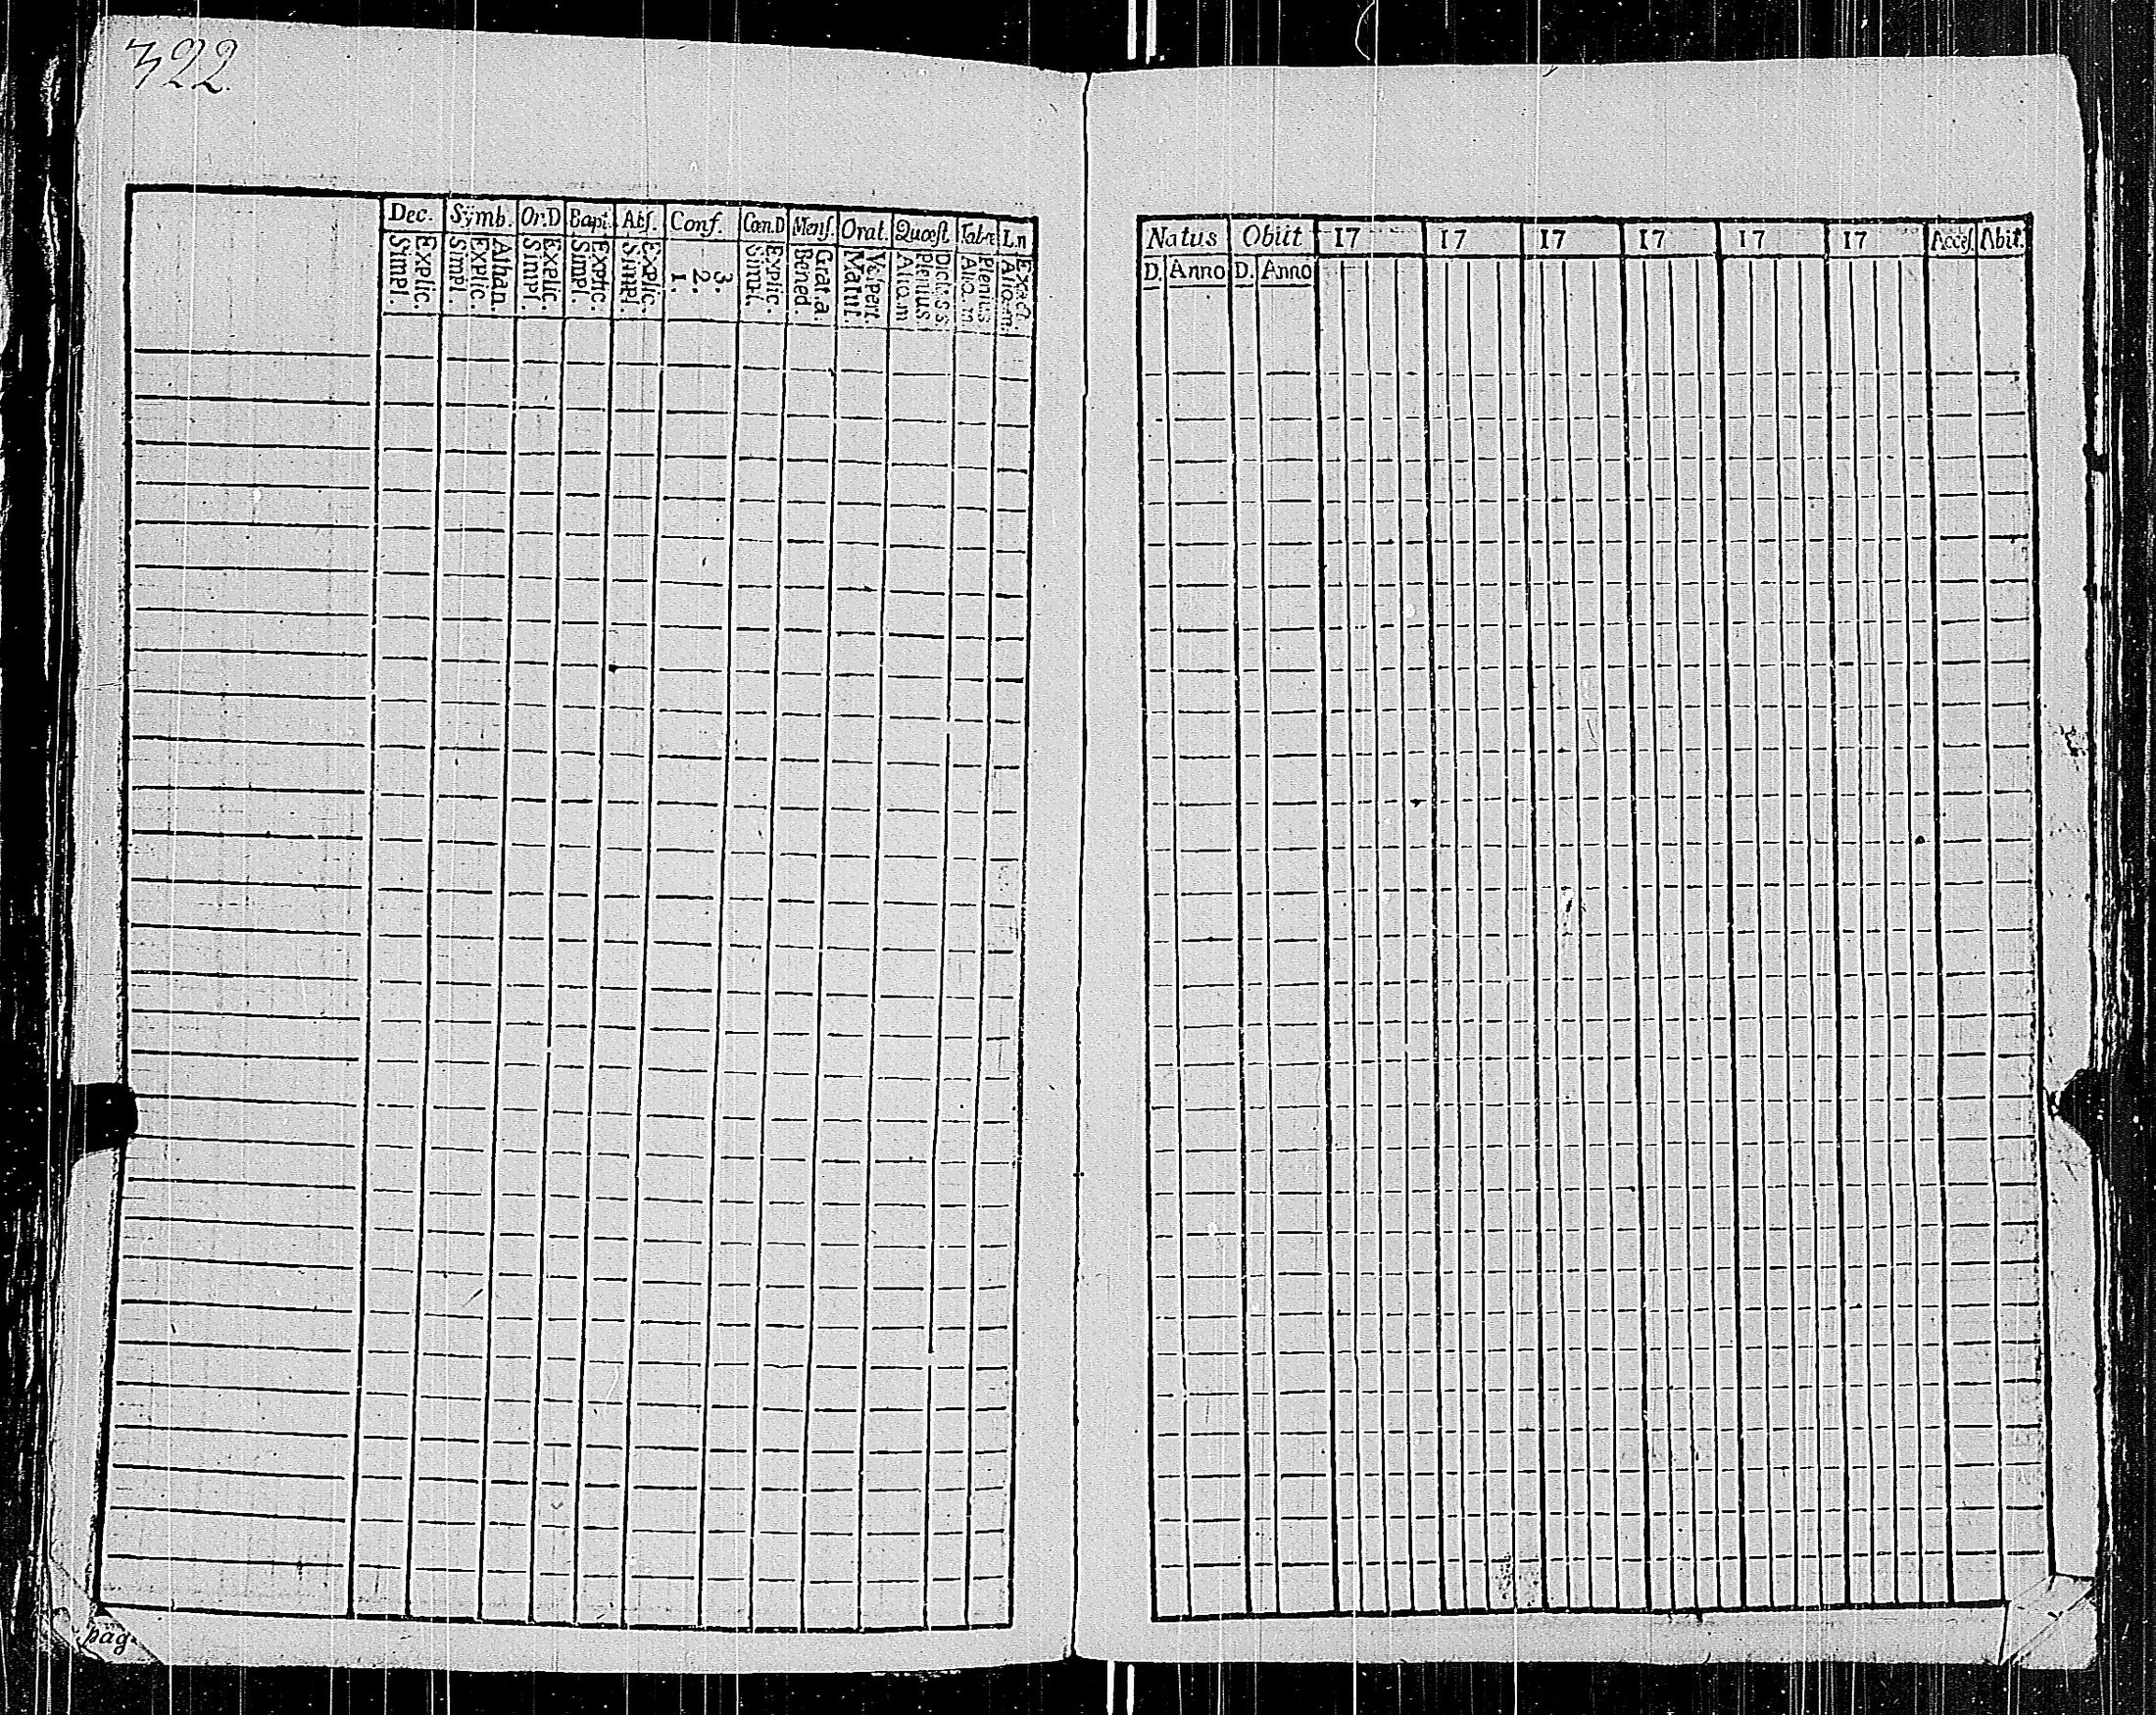 322.
Dec. Sÿmb. Or.D Bapt. Abs. Conf. Cœn.D Mens. Orat. Quœst. Tabæ Ln
Explic. Simpl. Athan. Explic. Simpl. Explic. Simpl. Explic. Simpl. Explic. Simpl. 3. 2. 1. Explic. Simpl. Grat.a. Bened. Vespert. Matut. Dict.s.s. Plenius Alio.m Plenius Alio.m Exact. Alio.m.
pag.
Natus Obiit 17 17 17 17 17 17 Acces. Abit.
D. Anno D. Anno